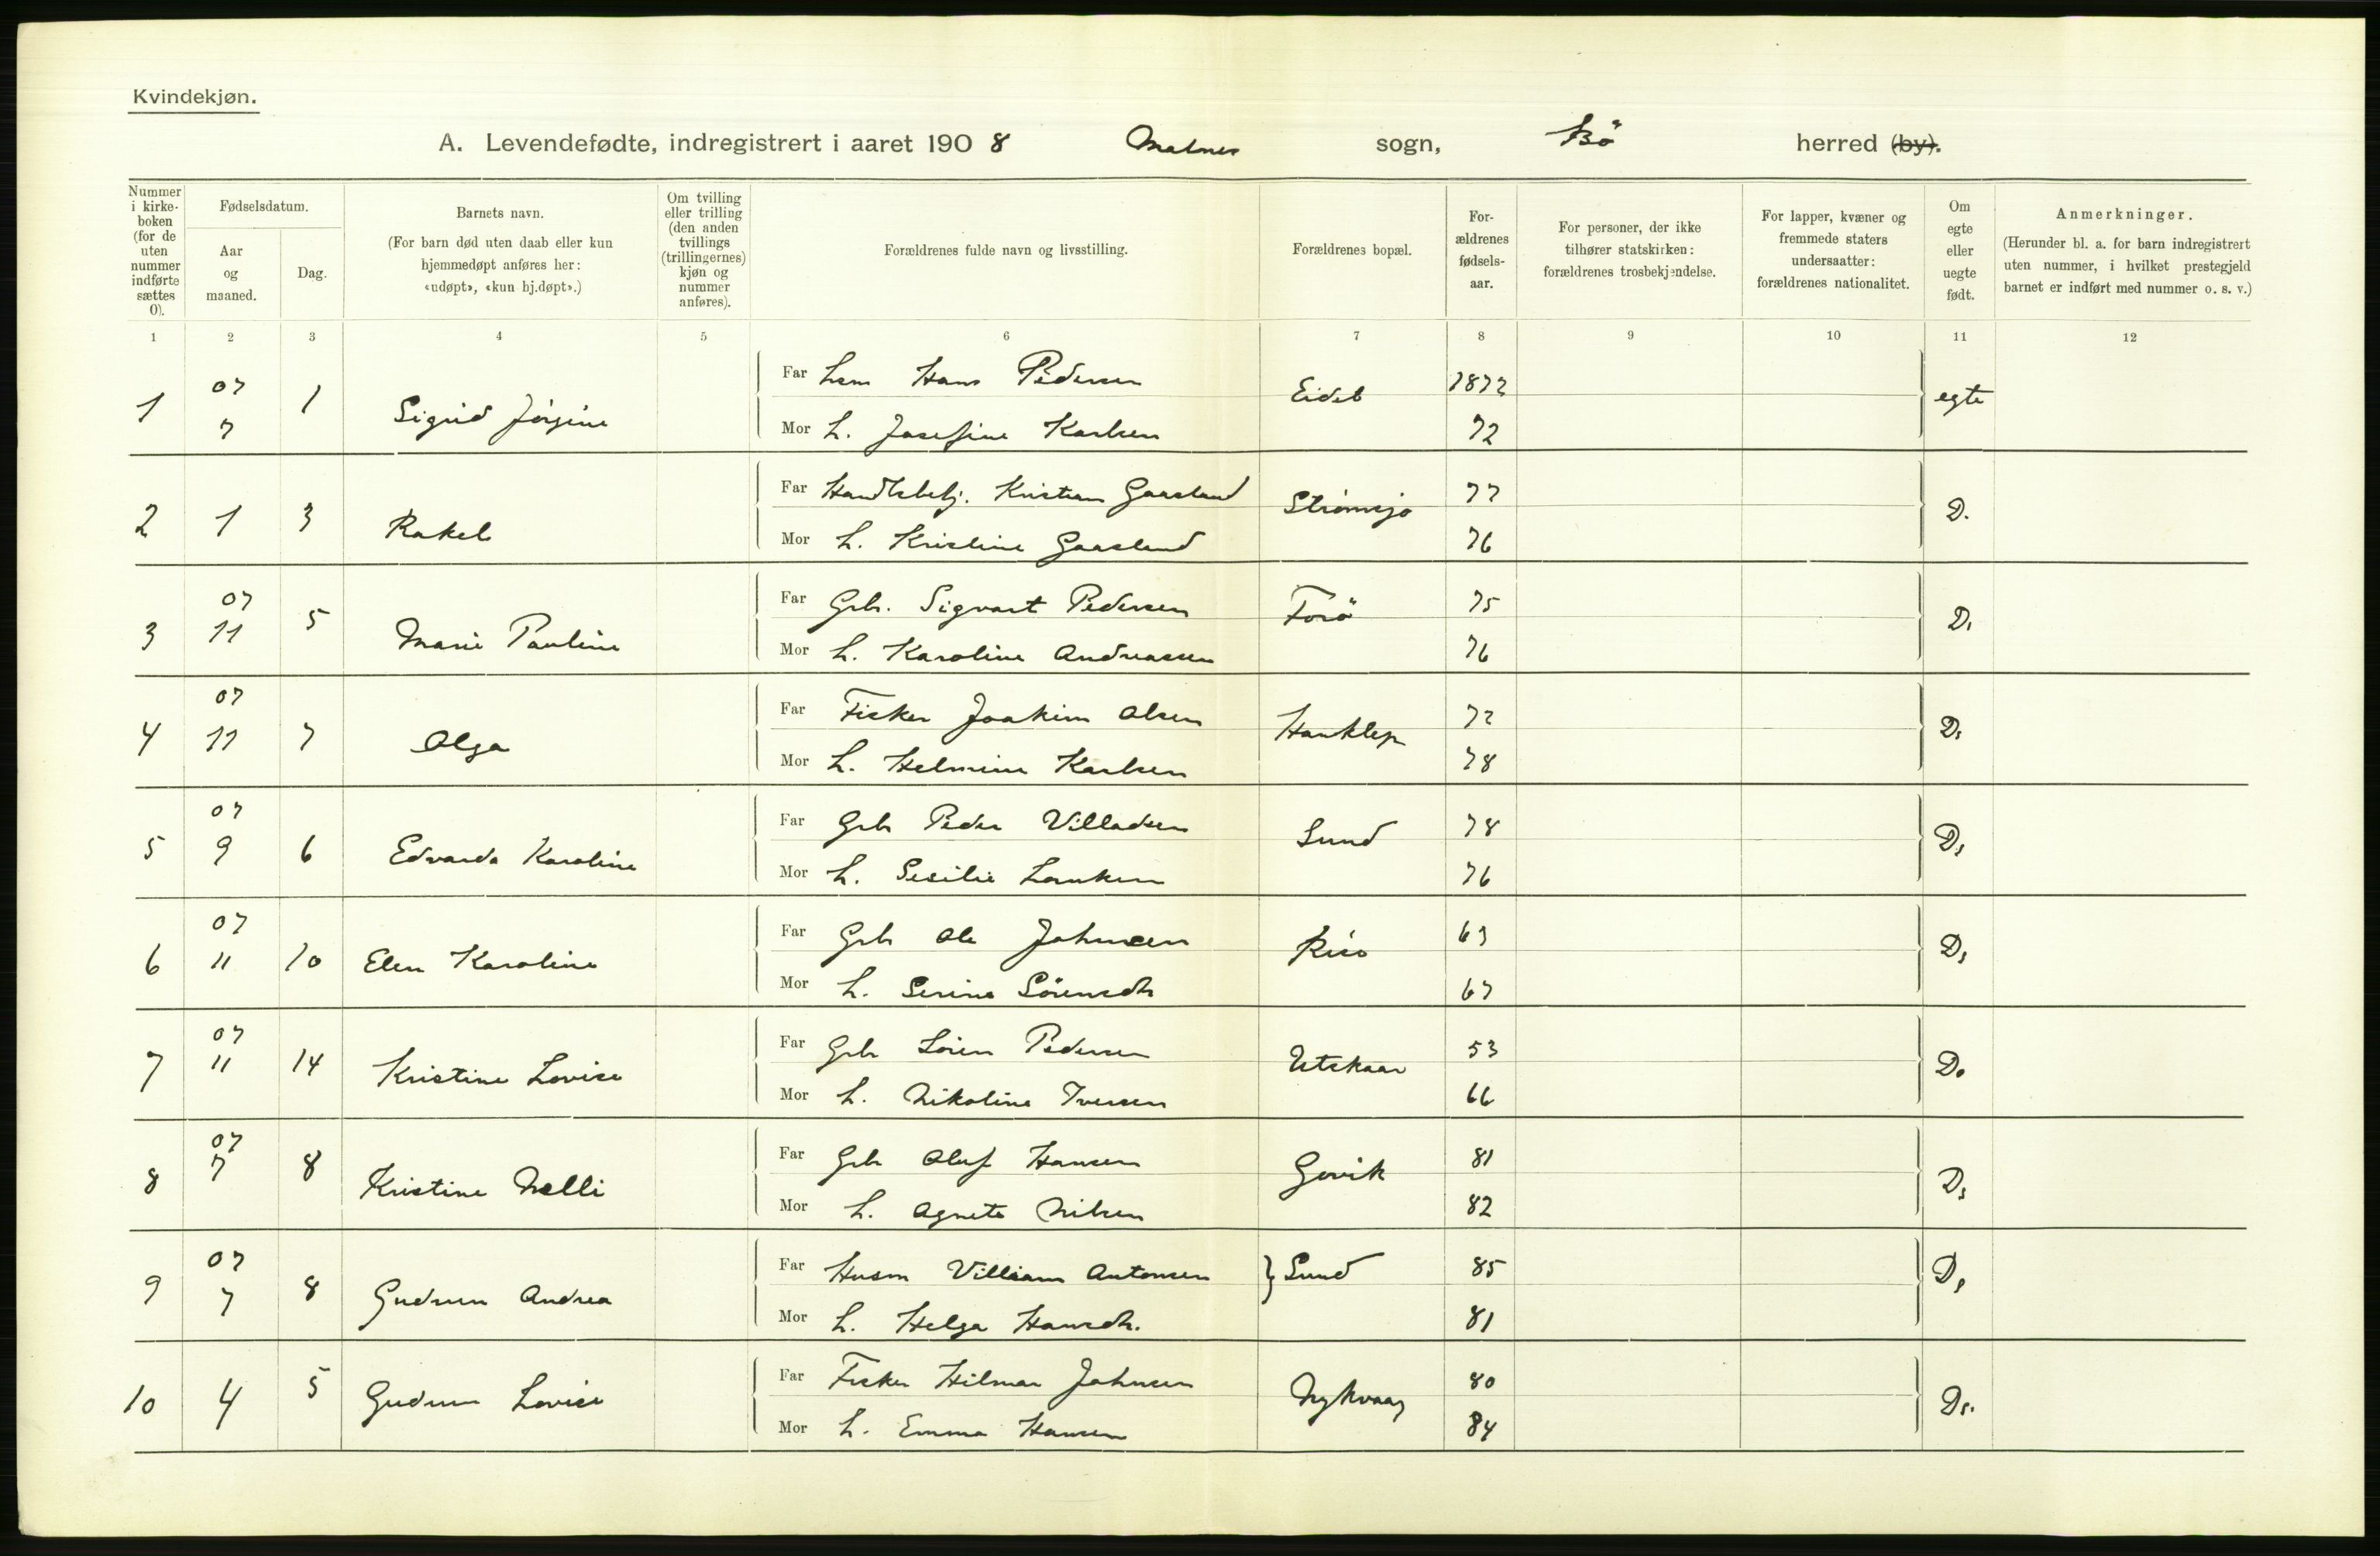 Kvindekjøn.
A. Levendefødte, indregistrert i aaret 1908 Malnes sogn, Bö herred (by).
Nummer i kirke-boken (for de uten nummer indførte sættes 0).
Fødselsdatum.
Aar og maaned.
Dag.
Barnets navn.
(For barn død uten daab eller kun hjemmedøpt anføres her: «udøpt», «kun hj.døpt».)
Om tvilling eller trilling (den anden tvillings (trillingernes) kjøn og nummer anføres).
Forældrenes fulde navn og livsstilling.
Forældrenes bopæl.
For-ældrenes fødsels-aar.
For personer, der ikke tilhører statskirken: forældrenes trosbekjendelse.
For lapper, kvæner og fremmede staters undersaatter: forældrenes nationalitet.
Om egte eller uegte født.
Anmerkninger.
(Herunder bl. a. for barn indregistrert uten nummer, i hvilket prestegjeld barnet er indført med nummer o. s. v.)
1 2 3 4 5 6 7 8 9 10 11 12
1 07 7 1 Sigrid Jörgine Far Hans Pedersen Eidet 1872 egte
Mor H. Josefine Karlsen 72
2 1 3 Rakel Far Handlsbetj. Kristian Gaasland Strömsjö 77 D.
Mor H. Kristine Gaasland 76
3 07 11 5 Marie Pauline Far Grb. Sigvart Pedersen Forö 75 D.
Mor H. Karoline Andreassen 76
4 07 11 7 Olga Far Fisker Joakim Olsen Hauklep 72 D.
Mor H. Helmine Karlsen 78
5 07 9 6 Edvarda Karoline Far Grb Peder Villadsen Sund 78 D.
Mor H. Sesilie 76
6 07 11 10 Elen Karoline Far Grb Ole Johnsen 63 D.
Mor H. Serine Sörensdtr 67
7 07 11 14 Kristine Lovise Far Grb Sören Pedersen Utskaar 53 D.
Mor H. Nikoline Iversen 66
8 07 7 8 Kristine Nelli Far Grb Oluf Hansen Guvik 81 D.
Mor H. Agnete Nilsen 82
9 07 7 8 Gudrun Andrea Far Husm Villiam Antonsen Sund 85 D.
Mor H. Helga Hansdtr. 81
10 4 5 Gudrun Lovise Far Fisker Hilmar Johnsen Nykvaag 80 D.
Mor H. Emma Hansen 84